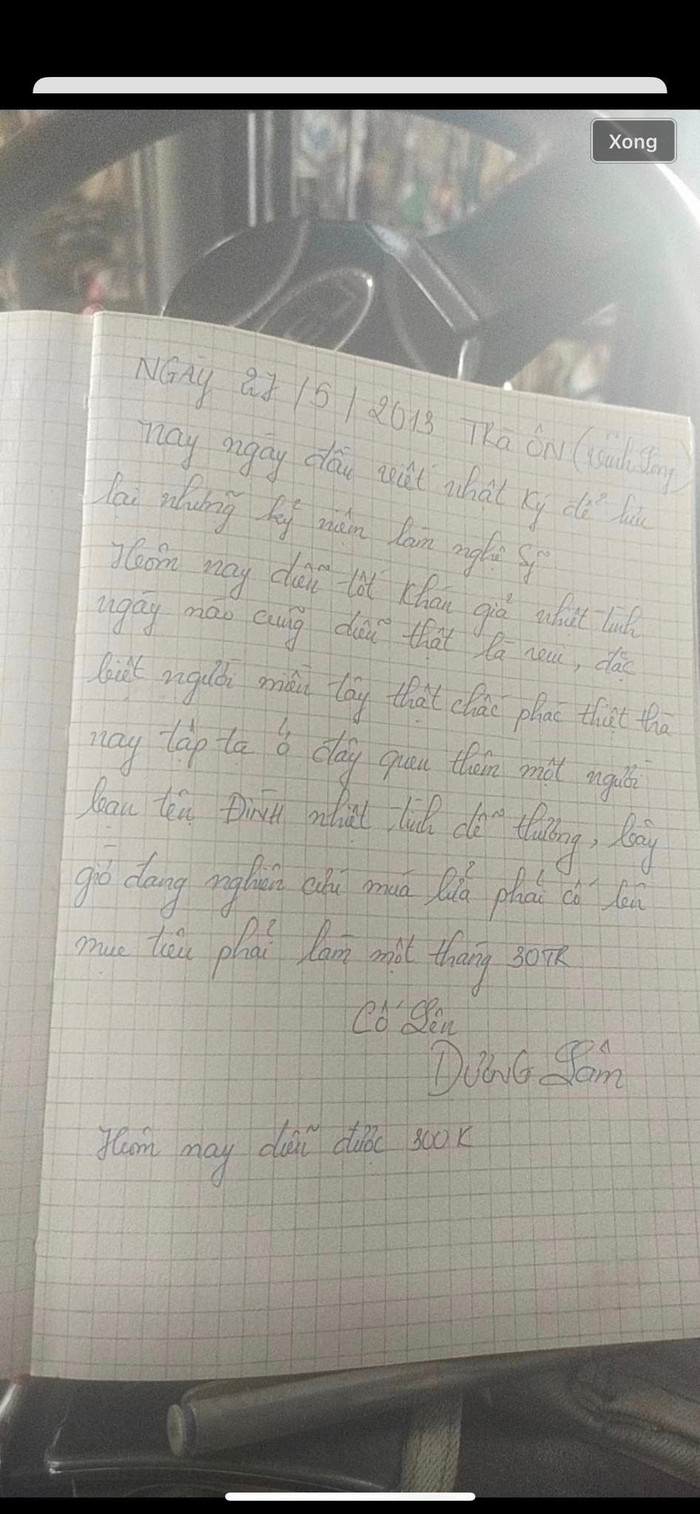 Xong
NGÀY 27/5/2013 TRÀ ÔN (Vĩnh Long)
nay ngày đầu viết nhật ký để lưu
lại những kỷ niệm làm nghệ sỹ
Hôm nay diễn tốt khán giả nhiệt tình
ngày nào cũng diễn thật là vui, đặc
biệt người miền tây thật chấc phác thiệt thà
nay tấp ta ở đây quen thêm một người
bạn tên ĐINH nhiệt tình dễ thương, bây
giờ đang nghiên cứu múa lửa phải cố lên
mục tiêu phải làm một tháng 30TR
Cố Lên
DƯƠNG Lâm
Hôm nay diễn được 300K